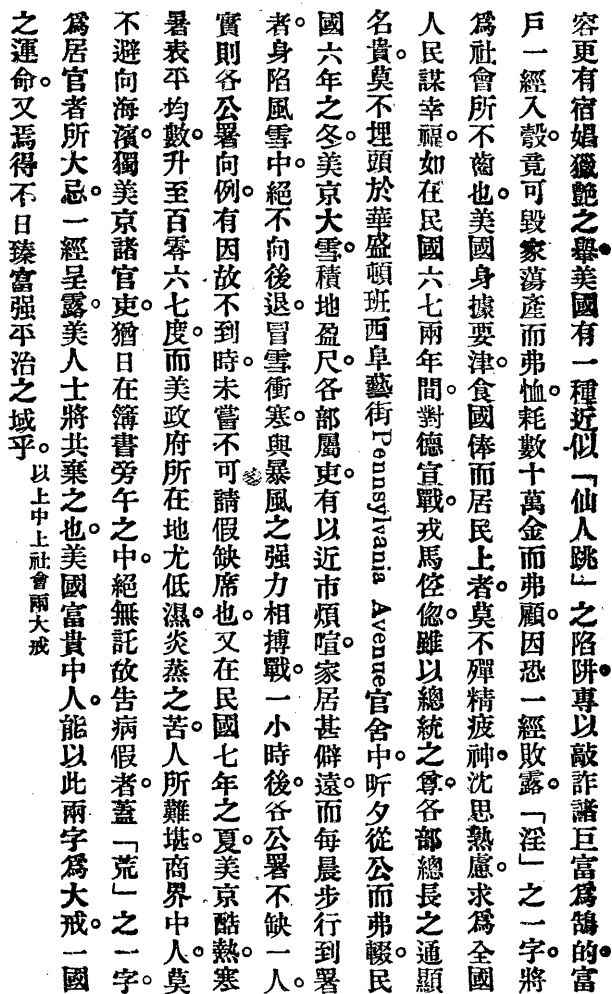 容更有宿娼獵艷之舉美國有一種近似「仙人跳」之陷阱專以敲詐諸巨富爲鵠的富
戶一經入彀竟可毀家蕩產而弗恤耗數十萬金而弗顧因恐一經敗露「淫」之一字將
爲社會所不齒也美國身據要津食國俸而居民上者莫不殫精疲神沈思熟慮求爲全國
人民謀幸福如在民國六七兩年間對德宣戰戎馬倥傯雖以總統之尊各部總長之通顯
名貴莫不埋頭於華盛頓班西阜藝街Pennsylvania Avenue官舍中昕夕從公而弗輟民
國六年之冬美京大雪積地盈尺各部屬吏有以近市煩喧家居甚僻遠而每晨步行到署
者身陷風雪中絕不向後退冒雪衝寒與暴風之强力相搏戰一小時後各公署不缺一人
實則各公署向例有因故不到時未嘗不可請假缺席也又在民國七年之夏美京酷熱寒
暑表平均數升至百零六七度而美政府所在地尤低濕炎蒸之苦人所難堪商界中人莫
不避向海濱獨美京諸官吏猶日在簿書旁午之中絕無託故告病假者蓋「荒」之一字
爲居官者所大忌一經呈露美人士將共棄之也美國富貴中人能以此兩字爲大戒一國
之運命又焉得不日臻富强平治之域乎 以上中上社會兩大戒